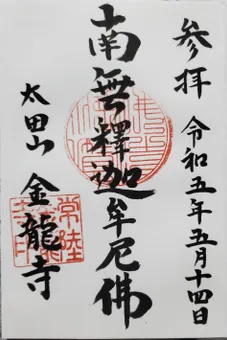 参拝 令和五年五月十四日
南無釋迦牟尼佛
太田山 金龍寺
常陸